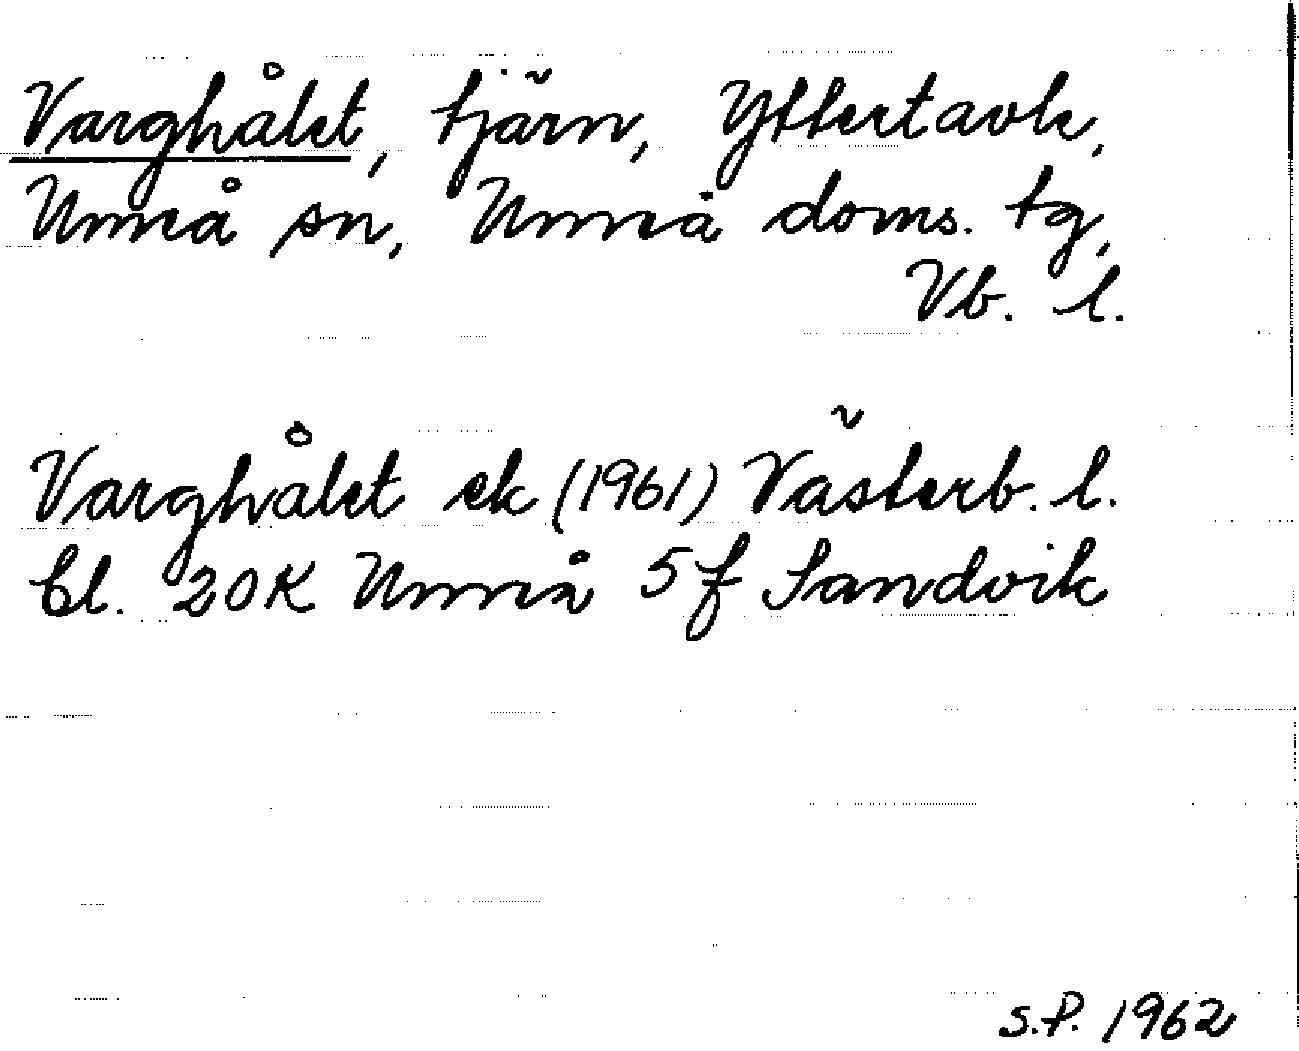 Varghålet, tjärn, Yttertavle,
Umeå sn, Umeå doms. tg,
Vb. l.
Varghålet ek (1961) Västerb. l.
bl. 20K Umeå 5f Sandvik
S.P. 1962